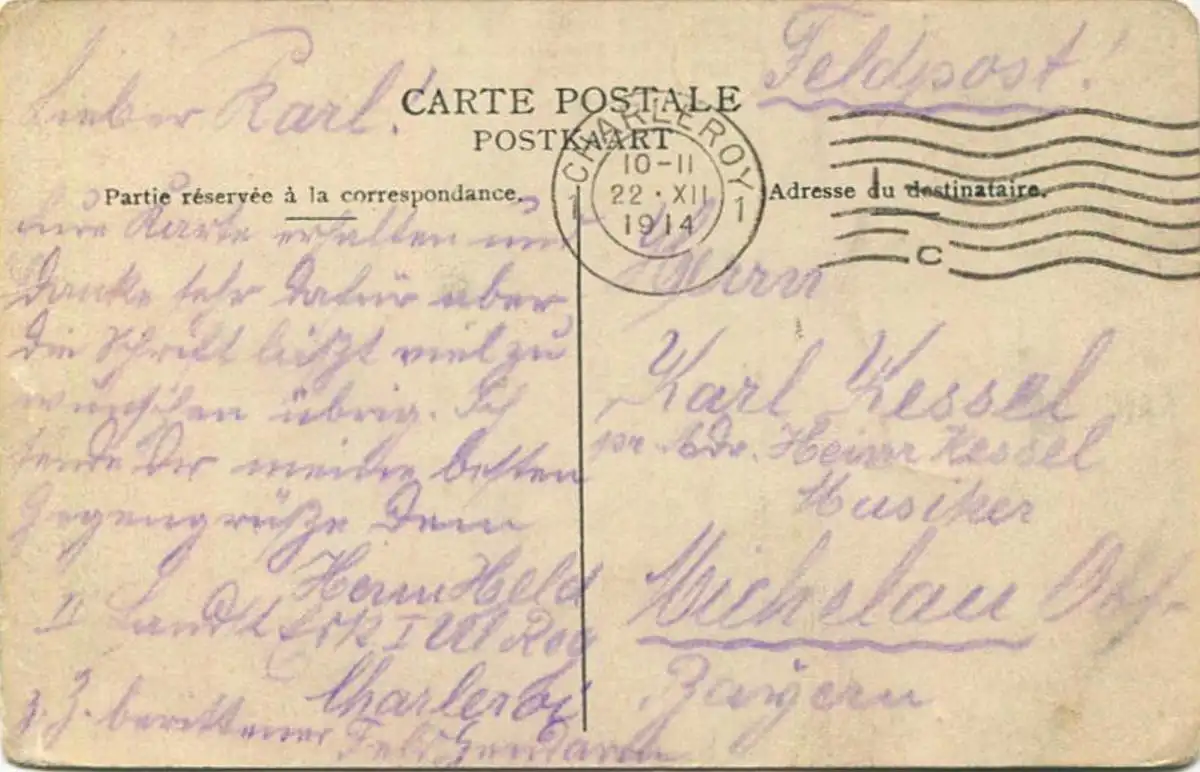 Feldpost!
Lieber Karl!
CARTE POSTALE
POSTKAART
CHARLEROY
1 1
10-11
22 · XII
1914
C
Partie réservée à la correspondance.
Adresse du destinataire.
Karte erhalten und
Danke sehr dafür aber
die Schrift läßt viel zu
wünschen übrig. Ich
sende Dir meine besten
Gegengrüße Dein
Herm Held
II Landst Esk I
Charleroi
z. Z. berittener Feldgendarm
Herrn
Karl Kessel
pr. Adr. Heinr Kessel
Musiker
Michelau Obf-
Bayern